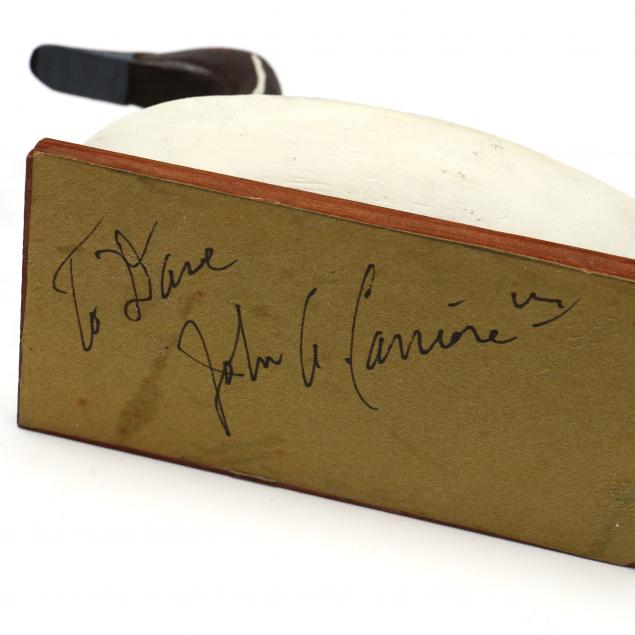 To Dave
John A Carriere